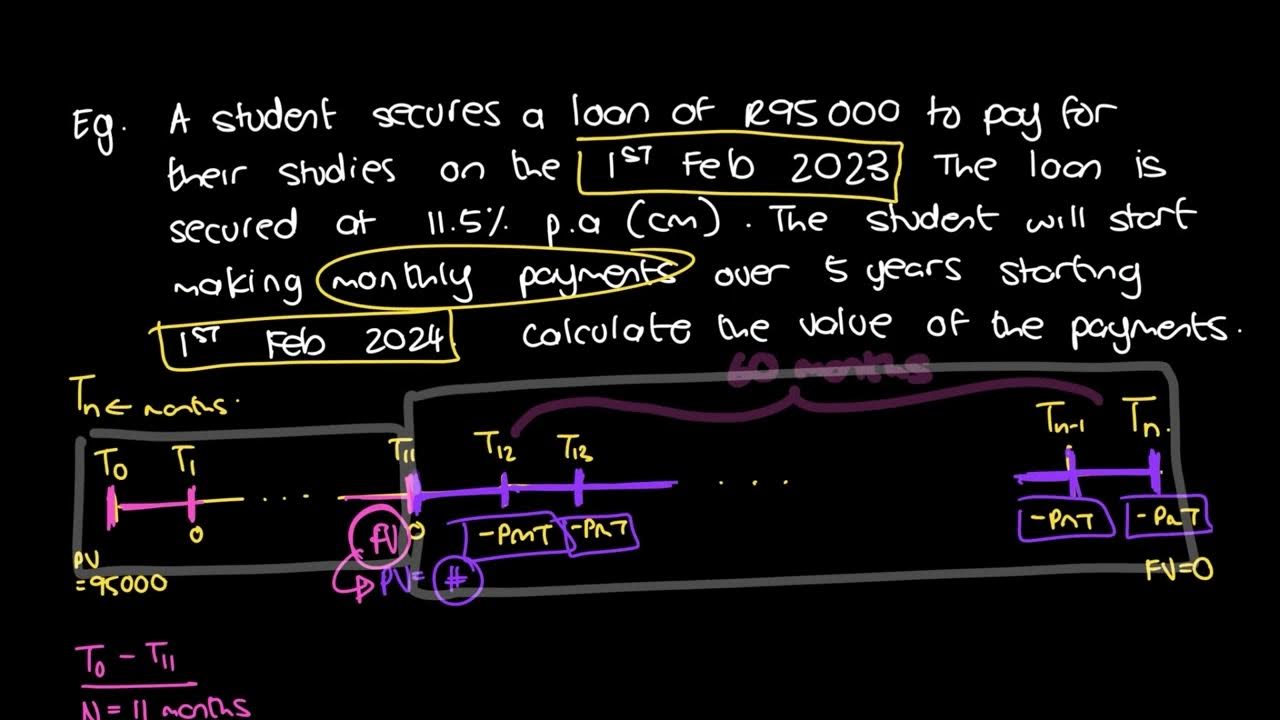 Eg. A student secures a loan of R95000 to pay for
their studies on the 1ST Feb 2023 The loan is
secured at 11.5% p.a (cm). The student will start
making monthly payments over 5 years starting
1ST Feb 2024 calculate the value of the payments.
60 months
Tn ← months.
T0 T1 T11 T12 T13 Tn-1 Tn.
.... ...
0 FV 0 -PMT -PMT -PMT -PMT
PV =95000
PV= # FV=0
T0 - T11
N = 11 months